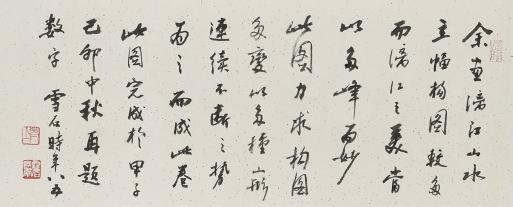 余画漓江山水
立幅构图较多
而漓江之美当
以多峰为妙
此图力求构图
多变以多种山形
连续不断之势
为之而成此卷
此图完成于甲子
己卯中秋再题
数字 雪石时年八五